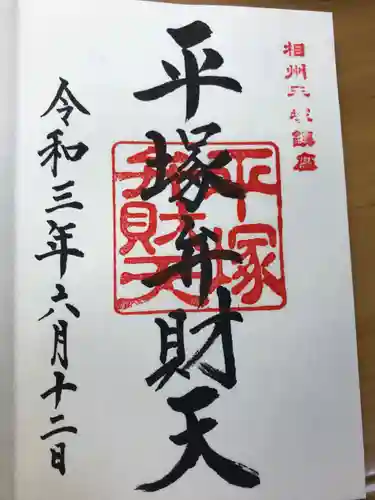 相州平塚鎮座
平塚弁財天
平塚
弁財天
令和三年六月十二日